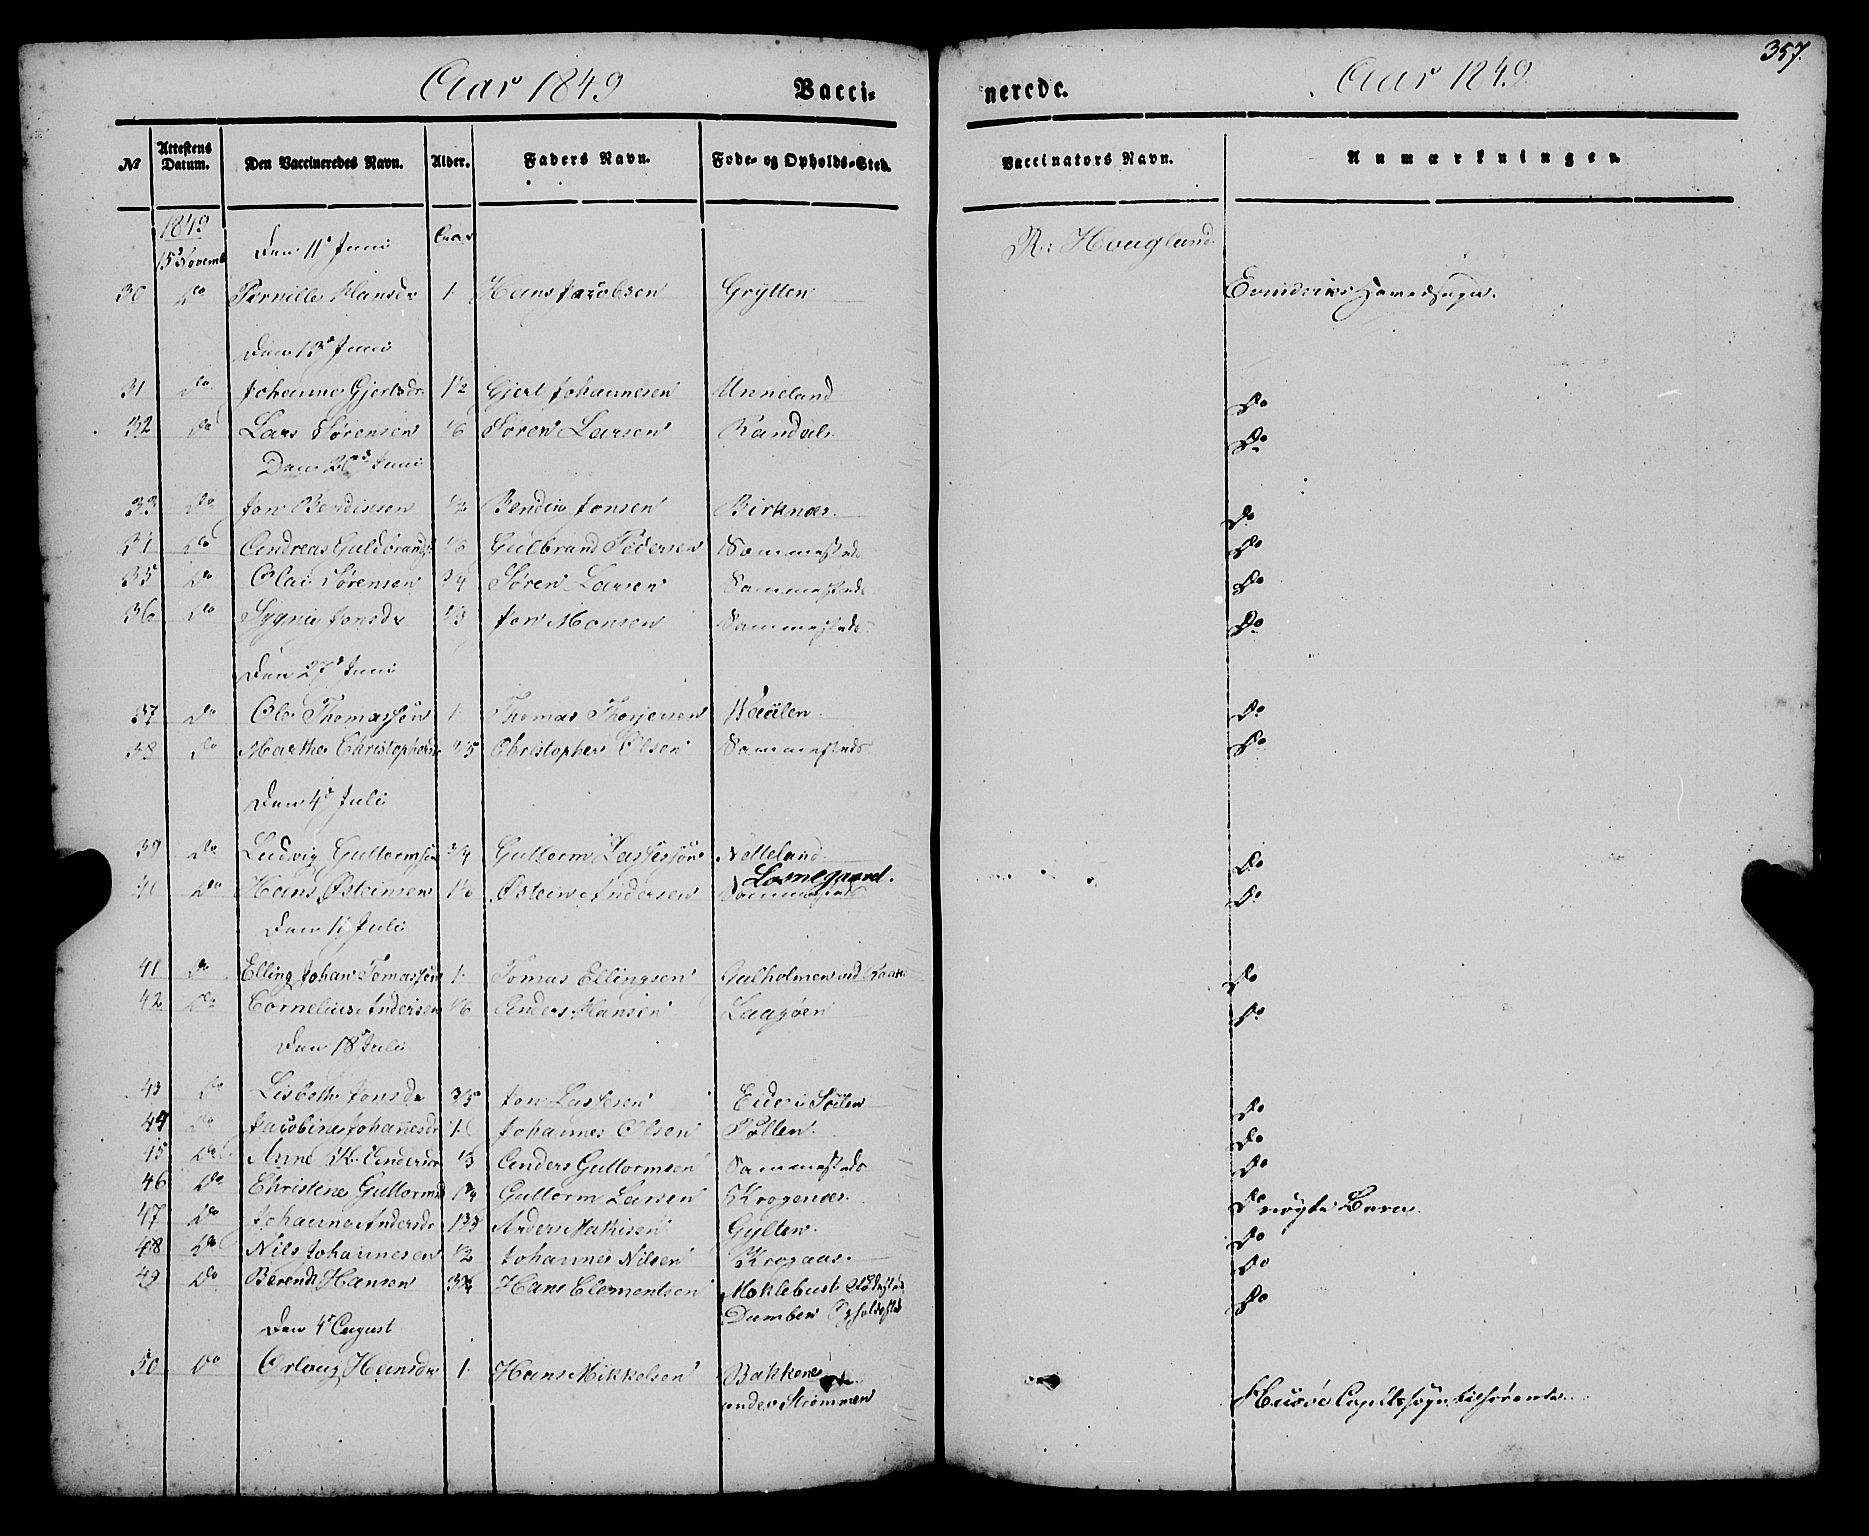 357.
Aar 1849 Vaccinerede. Aar 1849
No Attestens Datum. Den Vaccineredes Navn. Alder. Faders Navn. Føde- og Opholds-Sted. Vaccinators Navn. Anmærkninger.
1849
15 Novemb Den 11 Juni Aar R: Hougland
30 Do Pernille Hansdr 1 Hans Jacobsen Grytten Evindviks Hovedsogn.
Den 13 Juni
31 Do Johanne Gjertsdr 1/2 Gjert Johannesen Unneland Do
32 Do Lars Sørensen 1/6 Søren Larsen Randal Do
Den 26 Juni
33 Do Jon Bendixsen 1/2 Bendix Jonsen Birknæs. Do
34 Do Andreas Guldbrands 1/6 Gulbrand Pedersen Sammesteds Do
35 Do Olai Sørensen 3/4 Søren Larsen Sammesteds Do
36 Do Sygni Jonsdr 1/3 Jon Monsen Sammesteds Do
Den 27 Juni
37 Do Ole Thomassøn 1 Thomas Thorjersen Do
38 Do Marthe Christophers /5 Christopher Olsen Sammesteds Do
Den 4 Juli
39 Do Ludvig Guttormsøn 3/4 Guttorm Lassesøn Netteland Do
Losnegaard.
40 Do Hans Østeinsen 1/6 Østein Andersen Sammesteds Do
Den 11 Juli
41 Do Elling Johan Tomassøn 1 Tomas Ellingsen Gulholmen ved Do
42 Do Cornelius Andersen 1/6 Anders Hansen Laagøen Do
Den 18 Juli
43 Do Lisbeth Jonsdr 3/5 Jon Lassesen Eide i Do
44 Do Jacobine Johanesdr 1 Johannes Olsen Pollen. Do
45 Do Anne K. Andersdr 1/3 Anders Guttormsen Sammesteds Do
46 Do Christine Guttormsd Guttorm Larsen Krogenæs. Do uægte Barn.
47 Do Johanne Andersdr Anders Mathisen Gylten. Do
48 Do Nils Johannesen 1/2 Johannes Nilsen Krogaas. Do
49 Do Berendt Hansen 3/4 Hans Clementsen Moklebust Fødested Do
Dumben Opholdsted
Den 4 August
50 Do Orloug Hansdr 1. Hans Mikkelsen Bakkene
under Strømmen Husøe Capelsogn tilhørende.